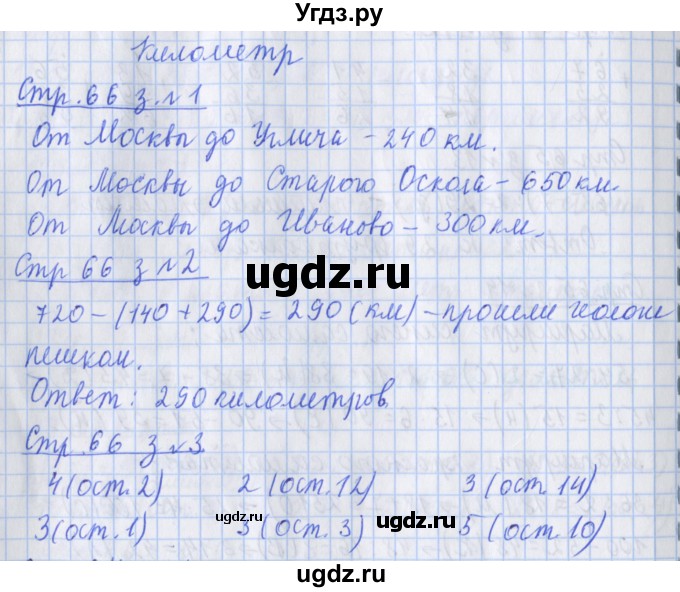 Угдз.ру
Километр
Стр. 66 з. №1
От Москвы до Углича - 240 км.
От Москвы до Старого Оскола - 650 км.
От Москвы до Иваново - 300 км.
ugdz.ru
Стр 66 з №2
720 - (140 + 290) = 290 (км) - прошли
пешком.
Ответ: 290 километров
Стр. 66 з №3.
4 (ост. 2) 2 (ост. 12) 3 (ост. 14)
ugdz.ru ugdz.ru
3 (ост. 1) 3 (ост. 3) 5 (ост. 10)
ugdz.ru
ugdz.ru